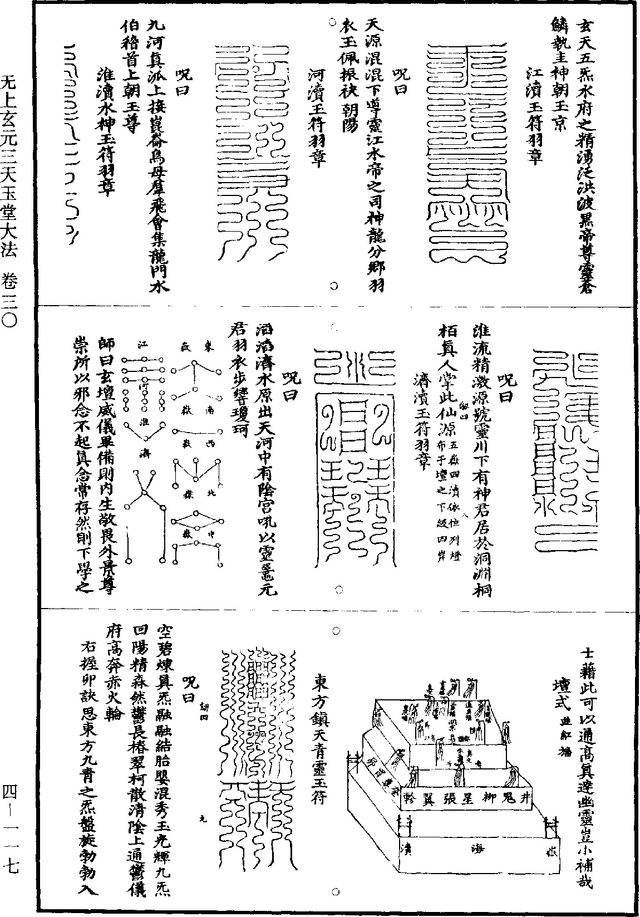 玄天五炁水府之精湧泛洪波黑帝尊靈蒼
鱗執圭神朝玉京
江瀆玉符羽章
呪曰
天源混混下導靈江水帝之司神龍分鄉羽
衣玉佩振袂朝陽
河瀆玉符羽章
呪曰
九河真派上接崑崙鳥母羣飛會集龍門水
伯稽首上朝玉尊
淮瀆水神玉符羽章
无上玄元三天玉堂大法 卷三〇
呪曰
淮流精激源號靈川下有神君居於洞淵桐
栢真人掌此仙源五嶽四瀆依位列燈
布于壇之下級四岸
濟瀆玉符羽章
呪曰
滔滔濟水原出天河中有陰宮吼以靈鼍元
君羽衣步響瓊珂
東
嶽
南
嶽
西
嶽
北
嶽
中
嶽
江
河
淮
濟
師曰玄壇威儀畢備則內生敬畏外景尊
崇所以邪念不起真念常存然則下學之
士藉此可以通高真達幽靈豈小補哉
壇式
井鬼柳星張翼軫
嶽
海
瀆
東方鎮天青靈玉符
呪曰
空碧煉真炁融融結胎嬰混秀玉光輝九炁
回陽精森然鬱長椿翠柯散清陰上通 儀
府高奔赤火輪
右握卯訣思東方九青之炁盤旋勃勃入
四—一一七